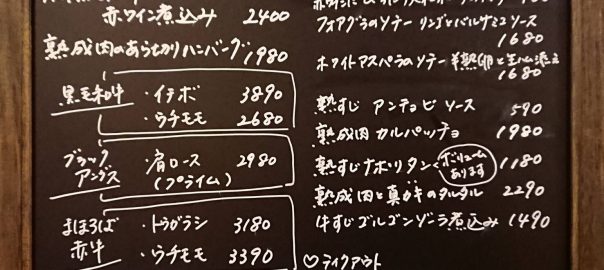 赤ワイン煮込み 2400
熟成肉のあらびきハンバーグ 1980
黒毛和牛 ・イチボ 3890
・ウチモモ 2680
ブラックアンガス ・肩ロース 2980
(プライム)
まほろば赤牛 ・トウガラシ 3180
・ウチモモ 3390
フォアグラのソテー リンゴとバルサミコソース
1680
ホワイトアスパラのソテー 半熟卵と生ハム添え
1680
熟すじ アンチョビソース 590
熟成肉 カルパッチョ 1980
熟すじナポリタン ボリュームあります 1180
熟成肉と真ガキのタルタル 2290
牛すじゴルゴンゾーラ煮込み 1490
♡テイクアウト